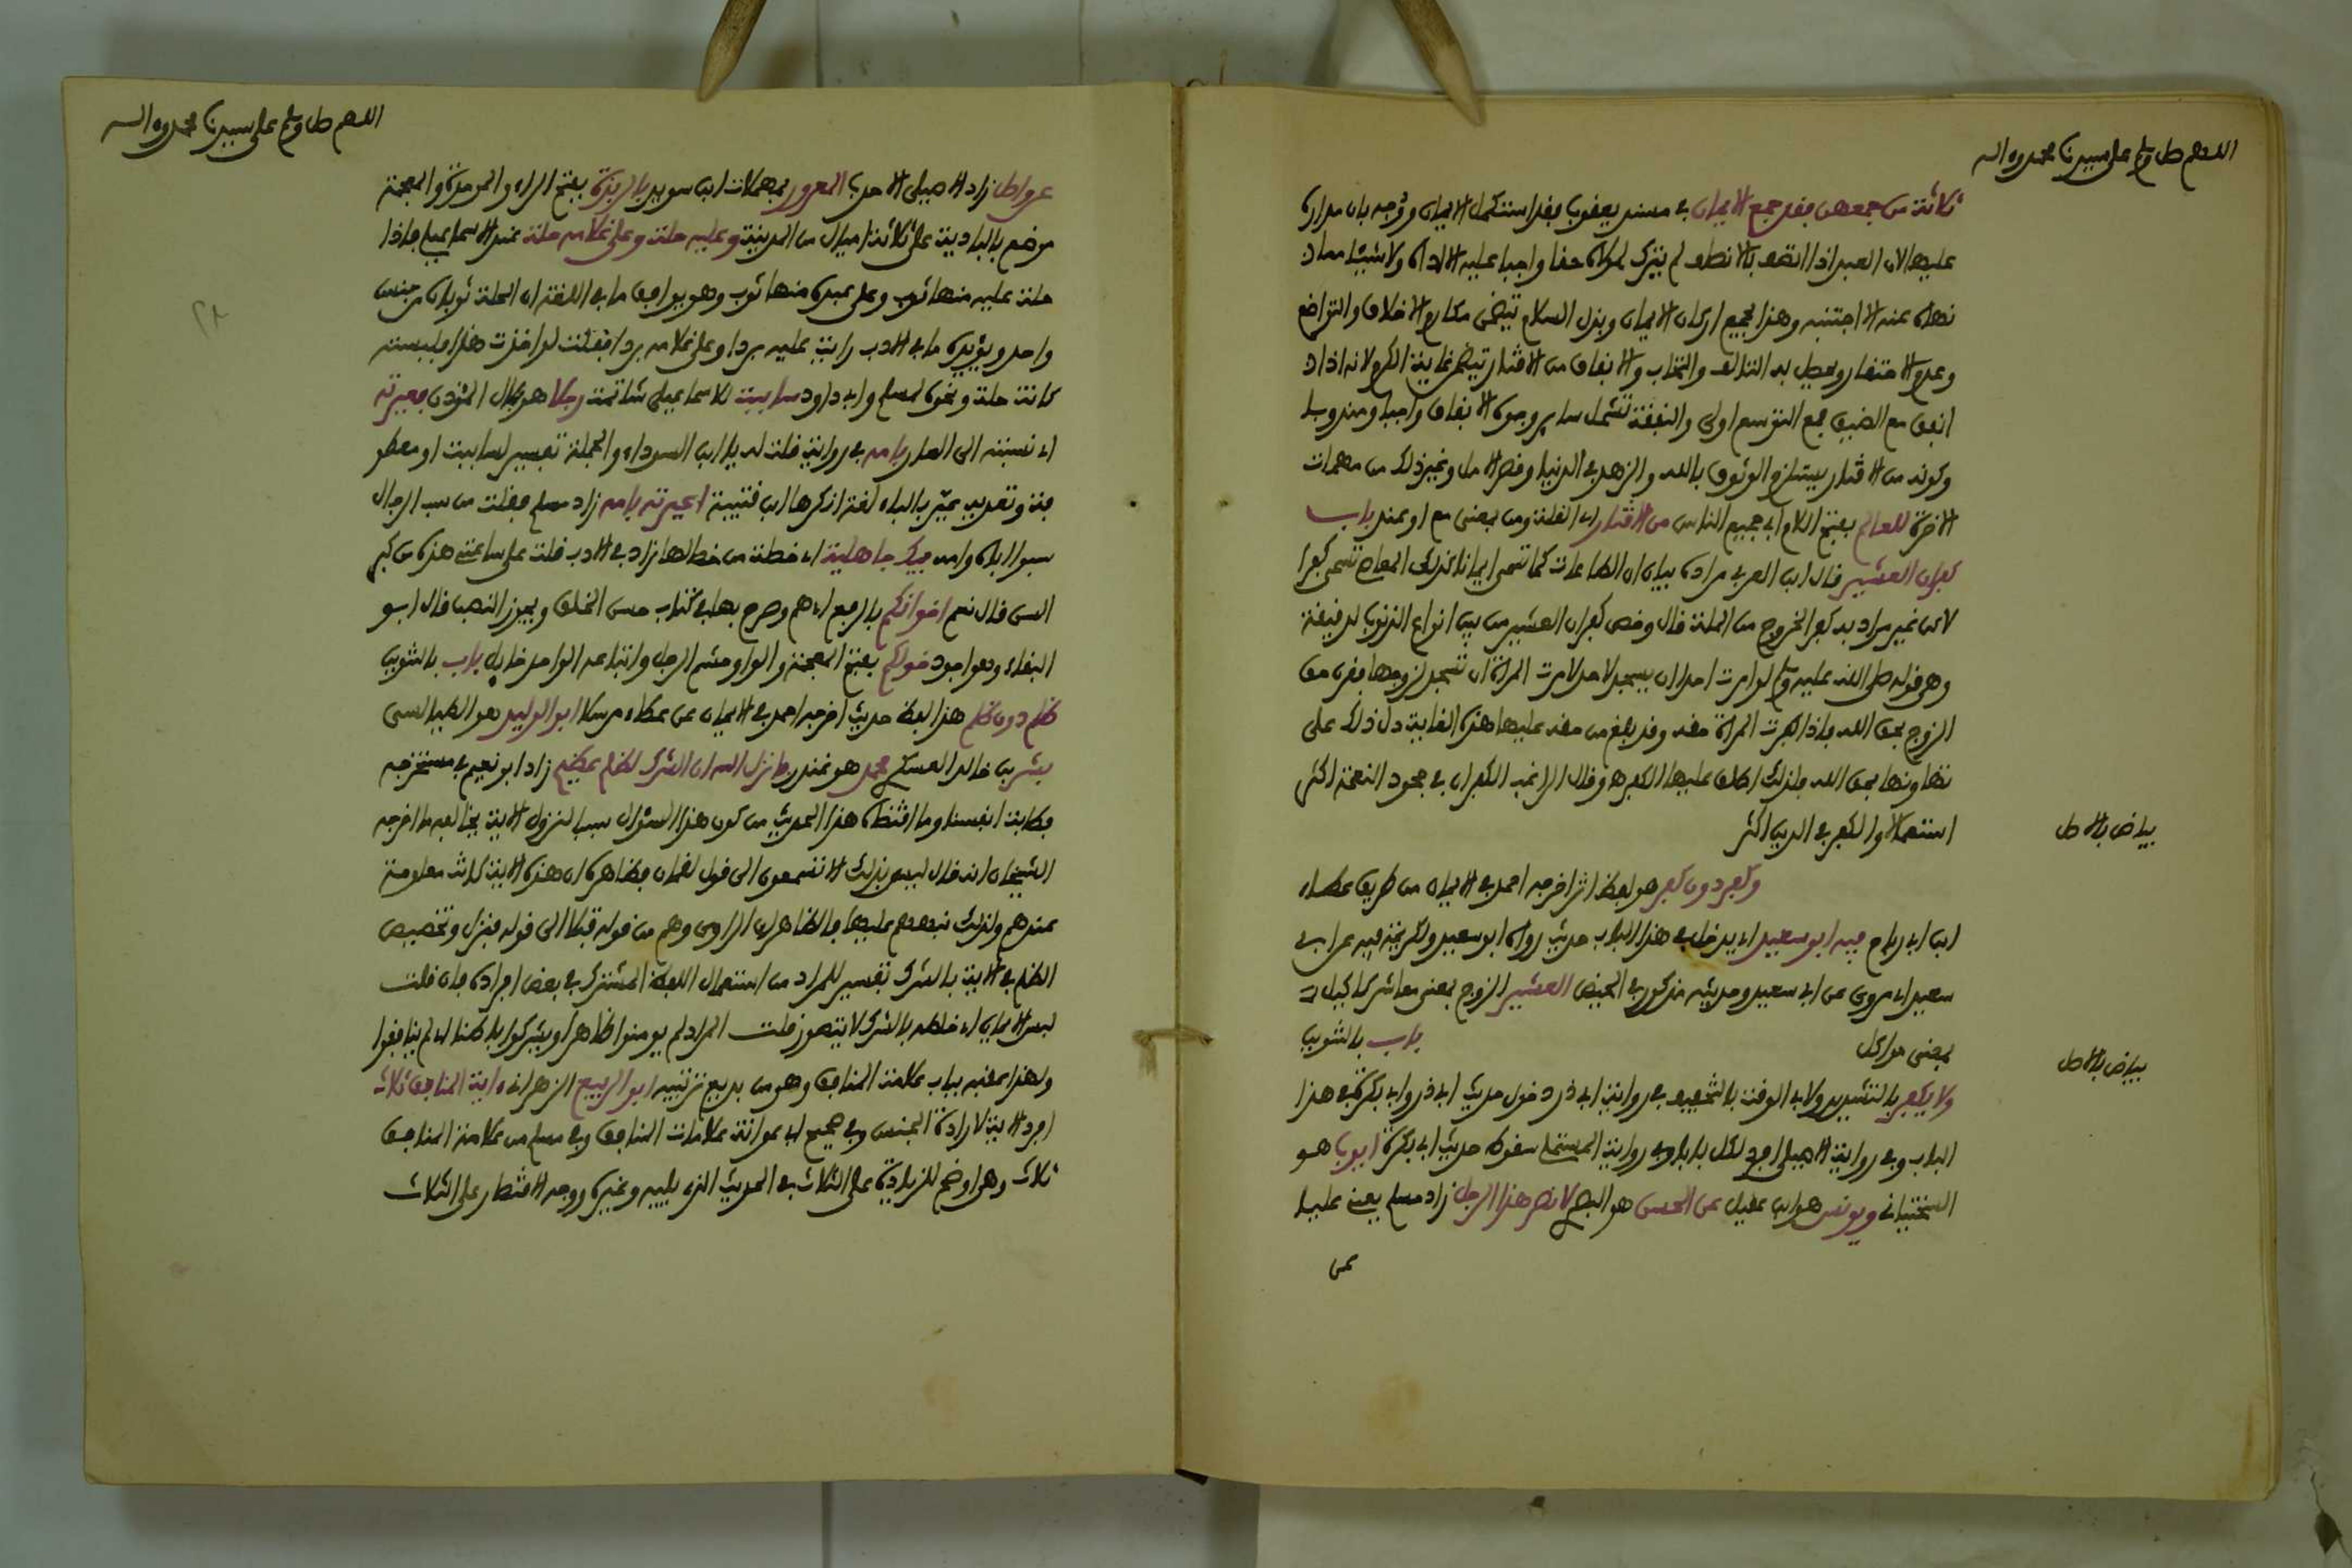 اللهم صل وسلم على سيدنا محمد وءاله
ثلاثة من جمعهن فقد جمع الايمان في مسند يعقوب فقد استكمل الايمان ووجه بان مداره
عليها لان العبد اذا اتصف بالانصاف لم يترك لمولاه حقا واجبا عليه الا اداه ولا شيئا مما
نهاه عنه الا اجتنبه وهذا يجمع اركان الايمان وبذل السلام يتضمن مكارم الاخلاق والتواضع
وعدم الاحتقار ويحصل به التئالف والتحاب والانفاق من الاقتار يتضمن غاية الكرم لانه اذا
انفق مع الضيق فمع التوسع اولى والنفقة تشمل ساير وجوه الانفاق واجبا ومندوبا
وكونه من الاقتار يستلزم الوثوق بالله والزهد في الدنيا وقصر الامل وغير ذلك من مهمات
الاخرة للعالم بفتح اللام اي جميع الناس من الاقتار اي القلة ومن بمعنى مع او عند باب
كفران العشير قال ابن العربي مراده بيان ان الطاعات كما تسمى ايمانا كذلك المعاصي تسمى كفرا
لاكن غير مراد به كفر الخروج من الملة قال وخص كفران العشير من بين انواع الذنوب لدقيقة
وهو قوله صلى الله عليه وسلم لو امرت احدا ان يسجد لاحد لامرت المرأة ان تسجد لزوجها فقرن حق
الزوج بحق الله فاذا كفرت المرأة حقه وقد بلغ من حقه عليها هذه الغاية دل ذلك على
تهاونها بحق الله فلذلك اطلق عليها الكفر وقال الراغب الكفران في جحود النعمة اكثر
استعمالا والكفر في الدين اكثر
بياض بالاصل
وكفر دون كفر هو لفظ اثر اخرجه احمد في الايمان من طريق عطاء
ابن ابي رباح فيه ابو سعيد اي يدخل في هذا الباب حديث رواه ابو سعيد ولكريمة فيه عن ابي
سعيد اي مروي عن ابي سعيد وحديثه مذكور في الحيض العشير الزوج بمعنى معاشر كاكيل
بمعنى مواكل باب بالتنوين
بياض بالاصل
ولا يكفر بالتشديد ولابي الوقت بالتخفيف في رواية ابي ذر دخول حديث ابي ذر وابي بكرة في هذا
الباب وفي رواية الاصيلي افرد لكل بابا وفي رواية المستملي سقوط حديث ابي بكرة ايوب هو
السختياني ويونس هو ابن عبيد عن الحسن هو البصري لانصر هذا الرجل زاد مسلم يعني عليا
عن
اللهم صل وسلم على سيدنا محمد وءاله
عن واصل زاد الاصيلي الاحدب المعرور بمهملات ابن سويد بالربذة بفتح الراء والموحدة والمعجمة
موضع بالبادية على ثلاثة اميال من المدينة وعليه حلة وعلى غلامه حلة عند الاسماعيلي فاذا
حلة عليه منها ثوب وعلى عبده منها ثوب وهو يوافق ما في اللغة ان الحلة ثوبان من جنس
واحد ويؤيده ما في الادب رايت عليه بردا وعلى غلامه بردا فقلت لو اخذت هذا فلبسته
كانت حلة ونحوه لمسلم وابي داود ساببت للاسماعيلي شاتمت رجلا هو بلال المؤذن فعيرته
اي نسبته الى العار بامه في رواية قلت له يا ابن السوداء والجملة تفسير لساببت او معطو
فة وتعدية عير بالباء لغة ذكرها ابن قتيبة اعيرته بامه زاد مسلم فقلت من سب الرجال
سبوا اباه وامه فيك جاهلية اي خصلة من خصالها زاد في الادب قلت على ساعتي هذه من كبر
السن قال نعم اخوانكم بالرفع اي هم وصرح بها في كتاب حسن الخلق ويجوز النصب قال ابو
البقاء وهو اجود خولكم بفتح المعجمة والواو حشم الرجل واتباعه الواحد خايل باب بالتنوين
ظلم دون ظلم هذا لفظ حديث اخرجه احمد في الايمان عن عطاء مرسلا ابو الوليد هو الطيالسي
بشر بن خالد العسكري محمد هو غندر ما نزل الله ان الشرك لظلم عظيم زاد ابو نعيم في مستخرجه
فطابت انفسنا وما اقتضاه هذا الحديث من كون هذا السؤال سببا لنزول الاية يخالفه ما اخرجه
الشيخان انه قال ليس بذلك الا تسمعون الى قول لقمان فظاهره ان هذه الاية كانت معلومة
عندهم ولذلك نبههم عليها فالظاهر ان الراوي وهم من قوله قبلا الى قوله فنزل وتخصيص
الظلم في الاية بالشرك تفسير للمراد من استعمال اللفظ المشترك في بعض افراده فان قلت
لبس الايمان اي خلطه بالشرك لا يتصور قلت المراد لم يومنوا ظاهرا ويشركوا باطنا اي لم ينافقوا
ولهذا عقبه بباب علامة المنافق وهو من بديع ترتيبه ابو الربيع الزهراني ءاية المنافق ثلاث
افرد الاية لارادة الجنس وفي صحيح ابي عوانة علامات المنافق وفي مسلم من علامة المنافق
ثلاث وهو اوضح للزيادة على الثلاث في الحديث الذي يليه وغيره ووجه الاقتصار على الثلاث